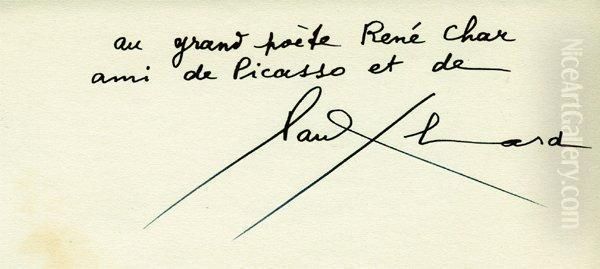 au grand poète René Char
ami de Picasso et de
Paul Éluard
NiceArtGallery.com